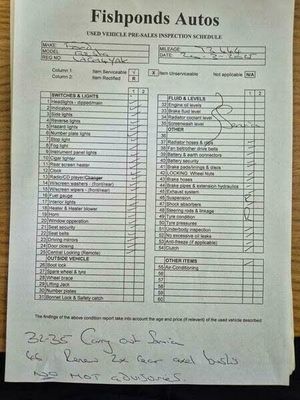 Fishponds Autos
USED VEHICLE PRE-SALES INSPECTION SCHEDULE
MAKE: Ford
MILEAGE:
MODEL
DATE:
REG NO
Column 1: Item Serviceable √ X Item Unserviceable Not applicable N/A
Column 2: Item Rectified R
SWITCHES & LIGHTS 1 2
1 Headlights - dipped/main
2 Indicators
3 Side lights
4 Reverse lights
5 Hazard lights
6 Number plate lights
7 Stop light
8 Fog light
9 Instrument panel lights
10 Cigar lighter
11 Rear screen heater
12 Clock
13 Radio/CD player/Changer
14 Windscreen washers - (front/rear)
15 Windscreen wipers - (front/rear)
16 Fuel gauge
17 Interior lights
18 Heater & Heater blower
19 Horn
20 Window operation
21 Seat security
22 Seat belts
23 Driving mirrors
24 Door closing
25 Central Locking (Remote)
OUTSIDE VEHICLE
26 Boot lock
27 Spare wheel & tyre
28 Wheel brace
29 Lifting Jack
30 Number plates
31 Bonnet Lock & Safety catch
FLUID & LEVELS 1 2
32 Engine oil levels
33 Brake fluid level
34 Radiator coolant level
35 Screenwash level
Service
OTHER
36
37 Radiator hoses & rigs
38 Fan belt/other drive belts
39 Battery & earth connectors
40 Battery security
41 Brake pads/linings & discs
42 LOCKING Wheel Nuts
43 Brake hoses
44 Brake pipes & extension hydraulics
45 Exhaust system
46 Suspension
47 Shock absorbers
48 Steering rods & linkage
49 Tyre condition
50 Tyre pressures
51 Underbody inspection
52 No excessive oil leaks
53 Anti-freeze (if applicable)
54 Clutch
OTHER ITEMS 1 2
55 Air-Conditioning
56
57
58
59
60
The findings of the above condition report take into account the age and price (if relevant) of the used vehicle described
32-35 Carry out Service
46 Renew 2x rear axel bushs
NO MOT advisories.